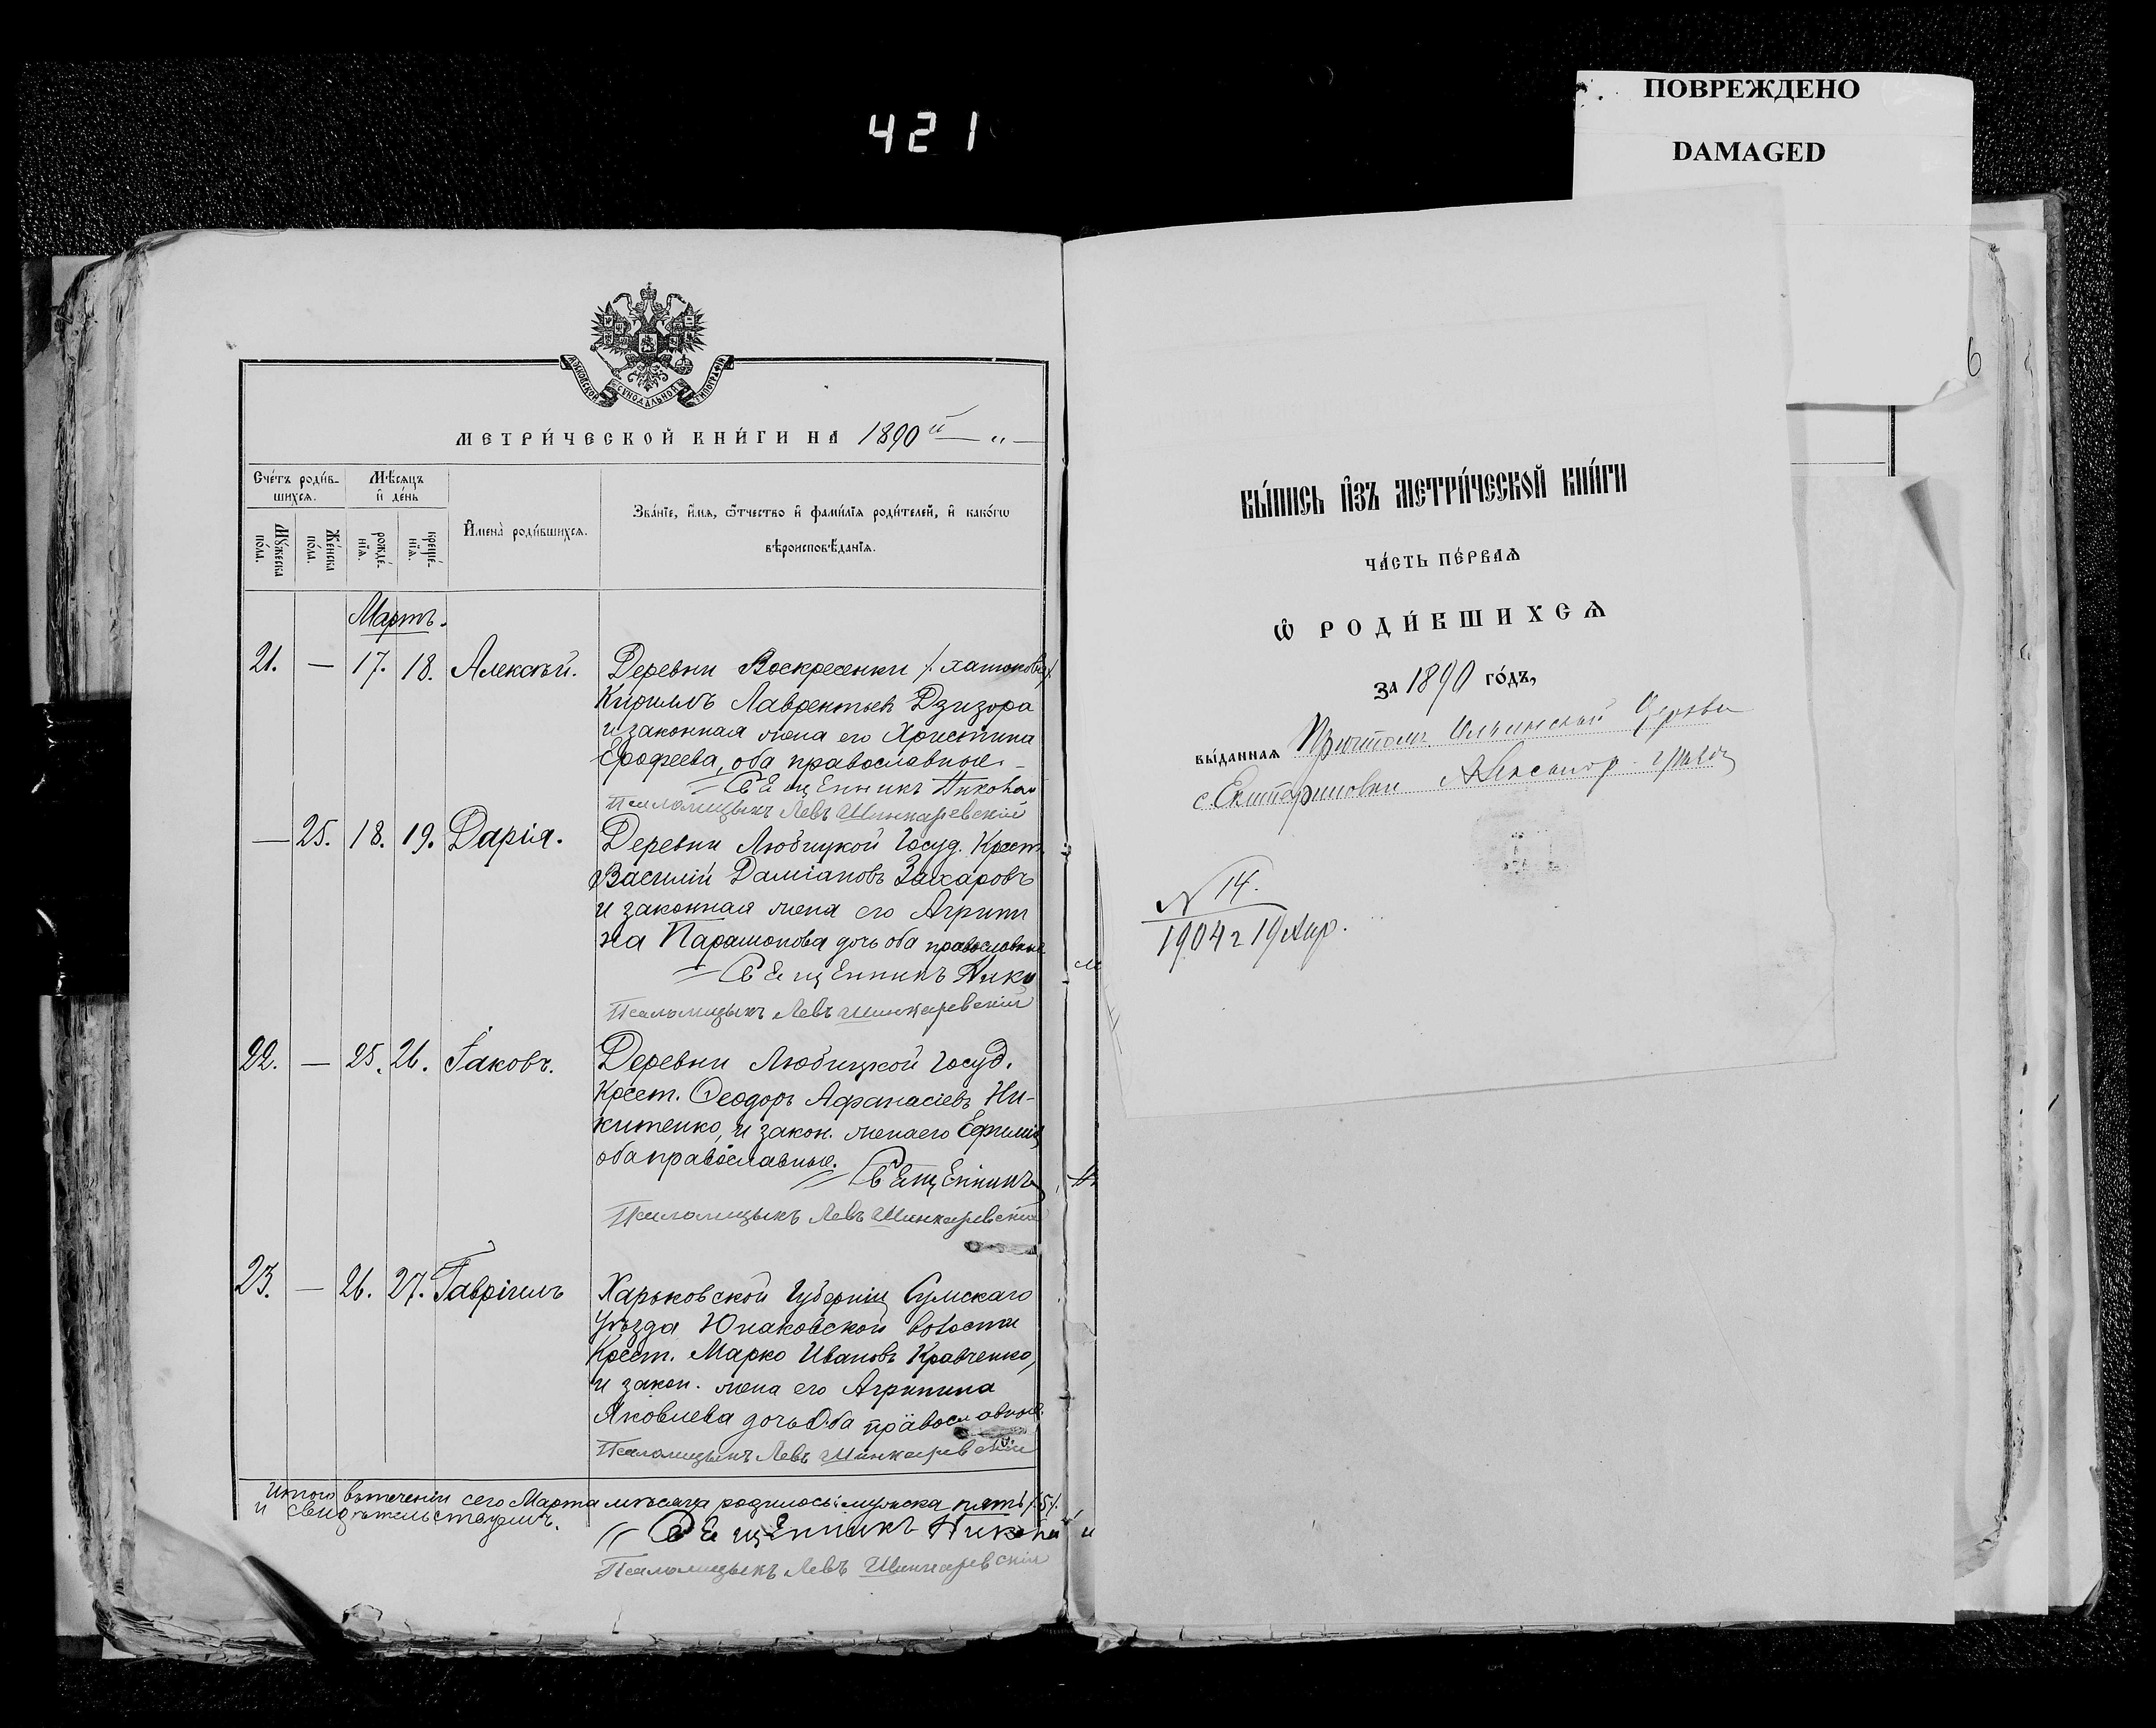 421
ПОВРЕЖДЕНО
DAMAGED
6
МОСКОВСКОЙ СѴНОДАЛЬНОЙ ТИПОГРАФІИ
МЕТРИ́ЧЕСКОЙ КНИ́ГИ НА 1890й — „ —
Сче́тъ роди́в-
шихсѧ.
Мѣ́сяцъ
и҆ де́нь
И҆мена̀ роди́вшихсѧ.
Зва́нїе, и҆́мѧ, ѻ҆́тчество и҆ фами́лїѧ роди́телей, и҆ како́гѡ
вѣроисповѣ́данїѧ.
Мꙋ́жеска
по́ла.
Же́нска
по́ла.
рожде́-
нїѧ.
креще́-
нїѧ.
Мартъ.
21. — 17. 18. Алексѣй. Деревни Воскресенки
Кириллъ Лаврентьев Дзизора
и законная жена его Христина
Ерофеева, оба православные. —
Священникъ Никола
Псаломщикъ Левъ Шинкаревскій
— 25. 18. 19. Дарія. Деревни Любицкой Госуд. Крест.
Василій Даміановъ Захаровъ
и законная жена его Агрипи
на Парамонова дочь оба православные
Священникъ Нико
Псаломщикъ Левъ Шинкаревскій
22. — 25. 26. Іаковъ. Деревни Любицкой Госуд.
Крест. Ѳеодоръ Аѳанасіевъ Ни-
китенко, и закон. жена его Ефимія
оба православные. Священникъ
Псаломщикъ Левъ Шинкаревскій
23. — 26. 27. Гавріилъ Харьковской Губерніи Сумскаго
Уѣзда Юнаковской волости
Крест. Марко Ивановъ Кравченко,
и закон. жена его Агрипина
Яковлева дочь Оба православные.
Псаломщикъ Левъ Шинкаревскій
Итого втеченіи сего Марта мѣсяца родилось: мужска пять /5/.
и свидѣтельствуемъ.
Священникъ Никола
Псаломщикъ Левъ Шинкаревскій
ВЫ́ПИСЬ И҆ЗЪ МЕТРИ́ЧЕСКОЙ КНИ́ГИ
ЧА́СТЬ ПЕ́РВАѦ
Ѡ҆ РОДИ́ВШИХСѦ
за 1890 го́дъ,
вы́даннаѧ Причтомъ Ильинской Церкви
с. Екатериновки Александр.
N 14.
1904 г 19 Апр.